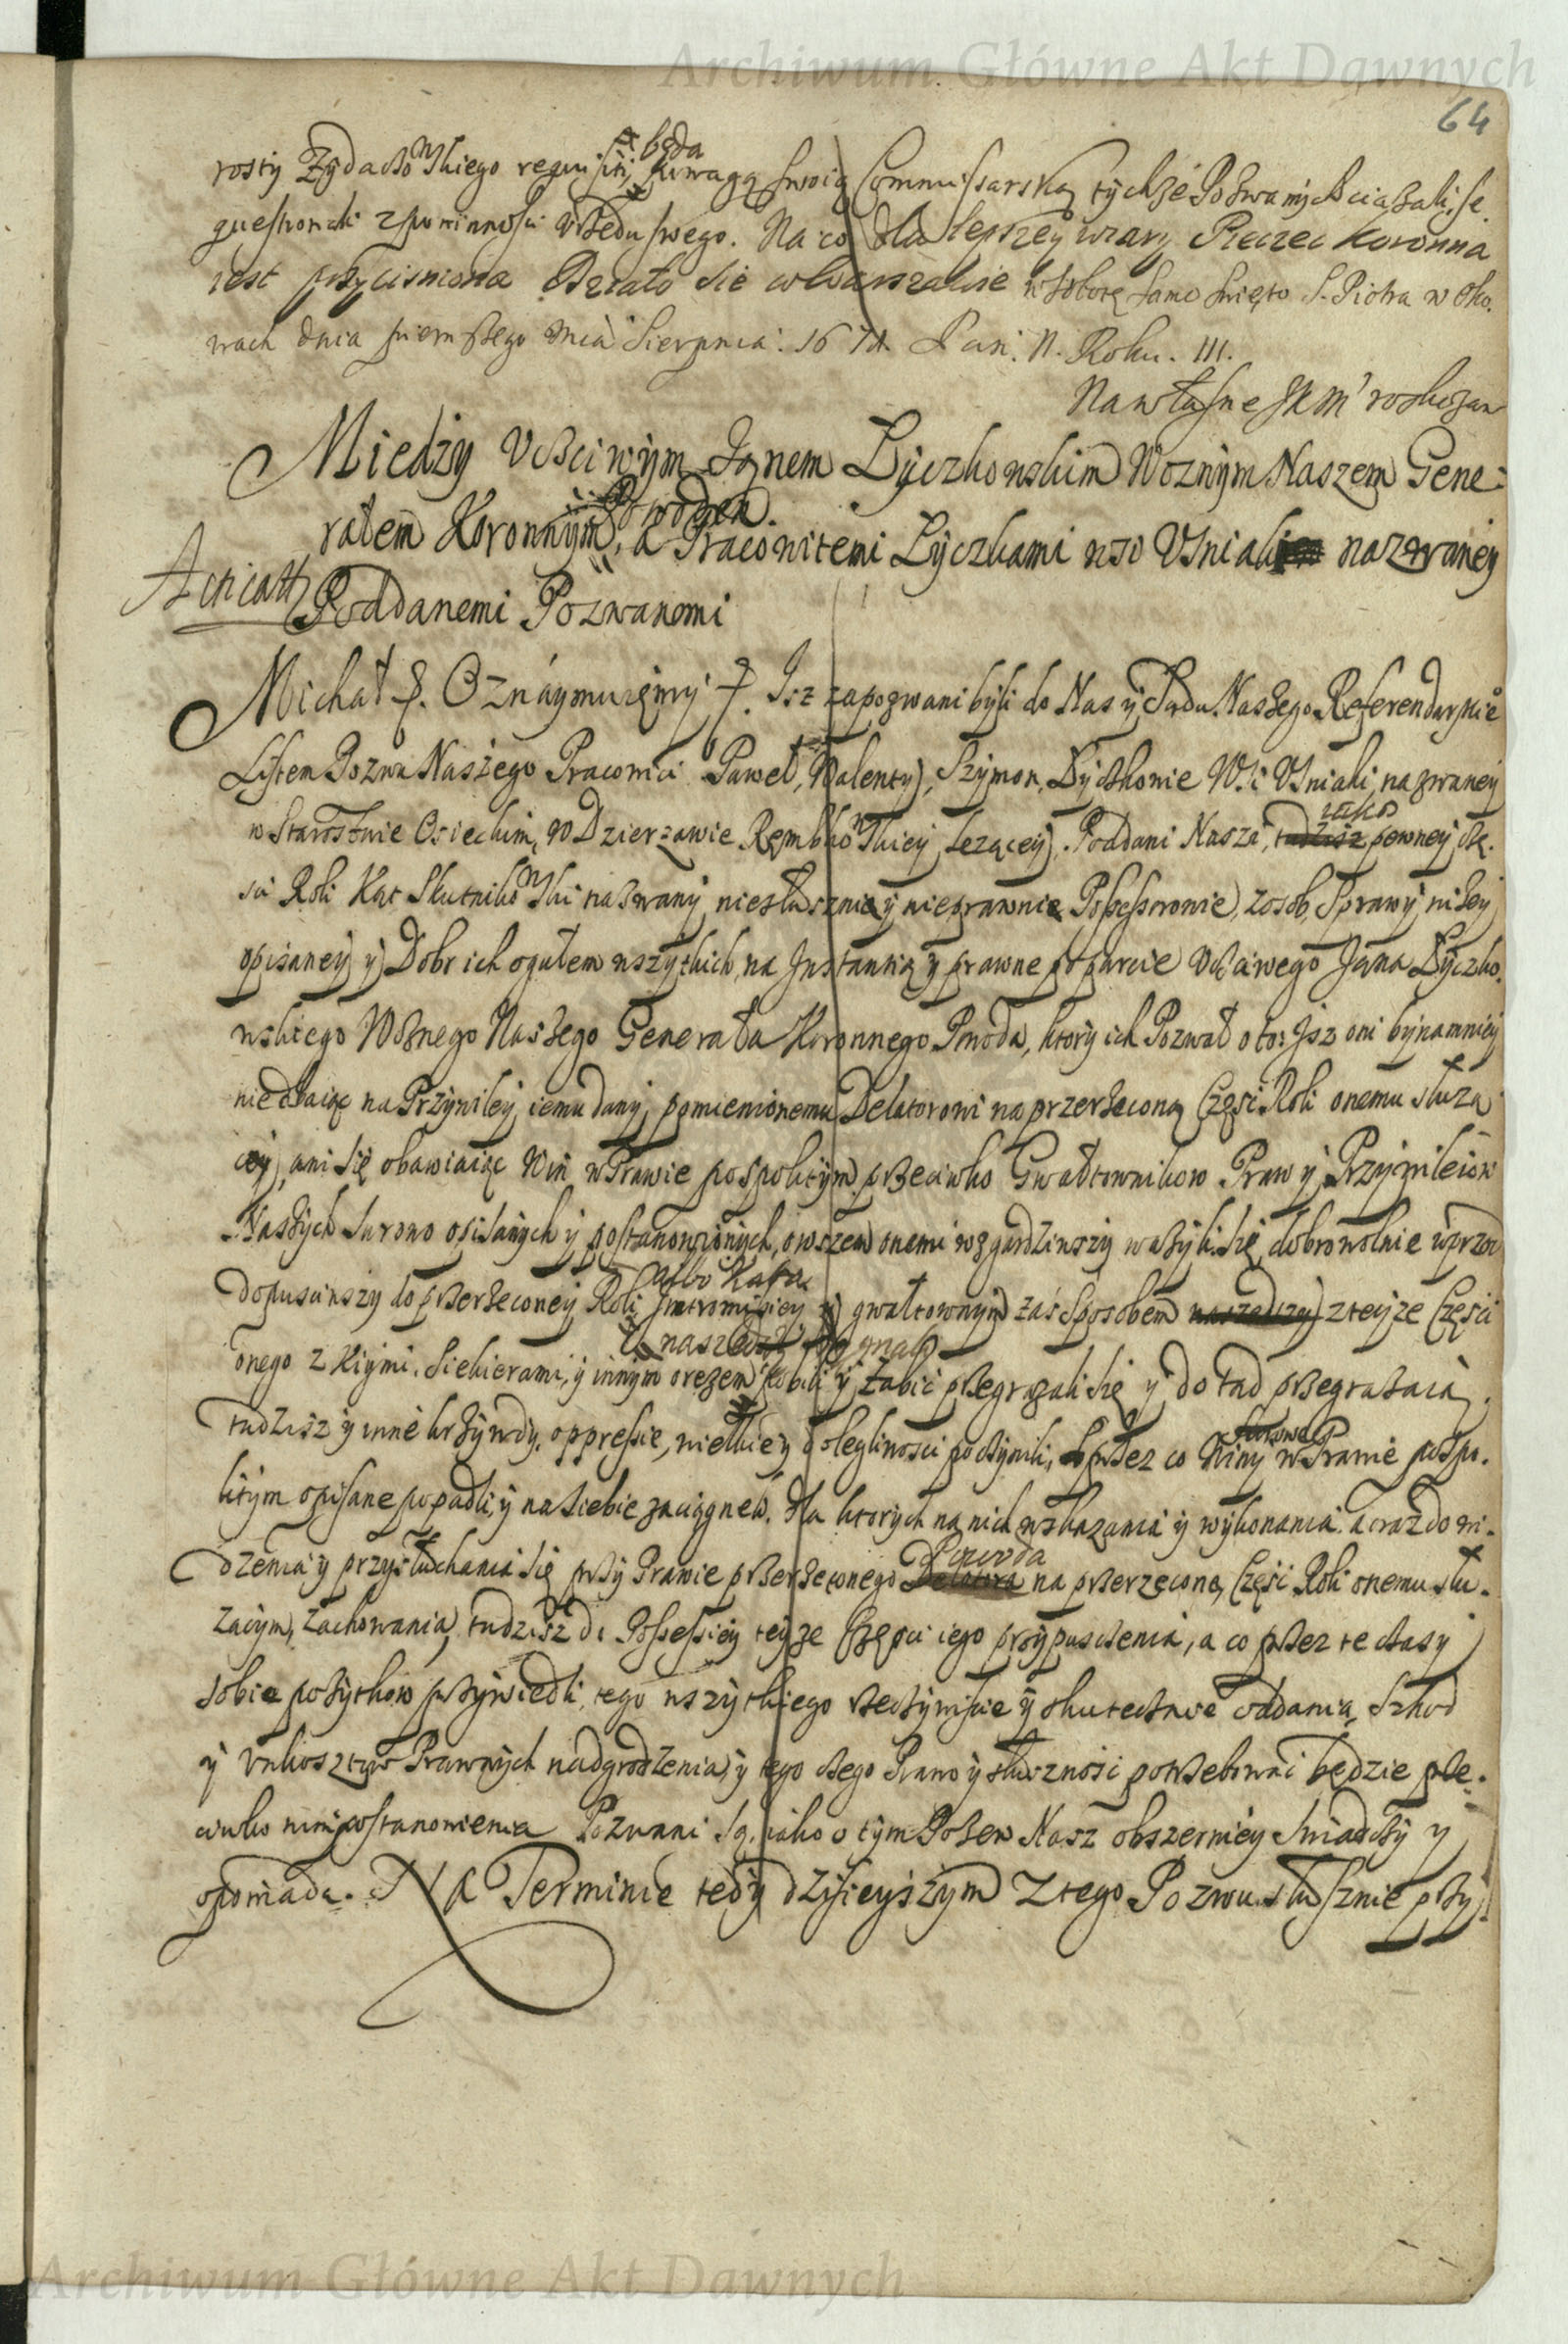 Archiwum Główne Akt Dawnych
64
rosty Zydaczowskiego requisiti, będą uwagą swoią Commissarską tychże Pozwanych
questionaki z powinności Vrzędu swego. Na co dla lepszey wiary Pieczęć Koronna
iest przyciśniona Działo się w Warszawie w Sobotę Samo Święto S. Piotra w Oko.
wach dnia pierwszego Mca Sierpnia. 1671. Pan. N. Roku. III.
Na własne JKM rozkazan
Miedzy Vczciwym Janem Łyczkowskim Woznym Naszem Gene-
rałem Koronnym, Powodem. a Pracowitemi Łyczkami wsi Vśniaki nazwaney
Poddanemi Pozwanemi
Michał &. Oznaymuiemy &. Isz zapozwani byli do Nas y Sądu Naszego Referendarskie
Listem Pozwu Naszego Pracowici Paweł, Walenty, Szymon, Łyczkowie Wsi Vśniaki nazwaney
w Starostwie Osieckim, w Dzierzawie Rębkowskiey lezącey, Poddani Naszi, tudzisz iako pewney czę.
sci Roli Kat Skutnikowski nazwany niesłusznie y nieprawnie Possessorowie, z osob, Sprawy niżey
opisaney y Dobr ich ogułem wszytkich, na Instantią y prawne poparcie Vczciwego Jana Łyczko.
wskiego Woznego Naszego Generała Koronnego Powoda, ktory ich Pozwał o to: Isz oni bynamniey
nie dbaiąc na Przywiley iemu dany, pomienionemu Delatorowi na przerzeconą Częsc Roli onemu służą
cey, ani się obawiaiąc Win w Prawie pospolitym przeciwko Gwałtownikow Praw y Przywileiow
Naszych surowo opisanych y postanowionych, owszem onemi wzgardziwszy ważyli się dobrowolnie wprzod
dopusciwszy do przerzeconey Roli albo Kata Intromissiey y gwałtownym zaś sposobem naszedszy z teyze Części
onego z Kiymi, Siekierami, y innym orężem naszedszy wygnali pobili y Zabić przegrażali się y do tąd przegrażaią,
tudzisz y inne krzywdy, oppressie, wielkiey dolegliwości poczynili, przez co Winy surowo w Prawie pospo.
litym opisane popadli y na siebie zaciągneli. dla ktorych na nich wskazania y wykonania. a oraz do wi.
dzenia y przysłuchania się przy Prawie przerzeconego Delatora Powoda na przerzeconą Częśc Roli onemu słu.
zącym, zachowania, tudzisz do Possessiey teyze Części iego przypuszczenia, a co przez te czasy
sobie pożytkow przywiedli, tego wszytkiego rzeczywiście y skutecznie oddania, Szkod
y vnkosztow Prawnych nadgrodzenia, y tego czego Prawo y słuszność potrzebować będzie prze.
ciwko nim postanowienia Pozwani są, iako o tym Pozew Nasz obszerniey świadczy y
opowiada. Na Terminie tedy dzisieyszym z tego Pozwu słusznie przy
Archiwum Główne Akt Dawnych